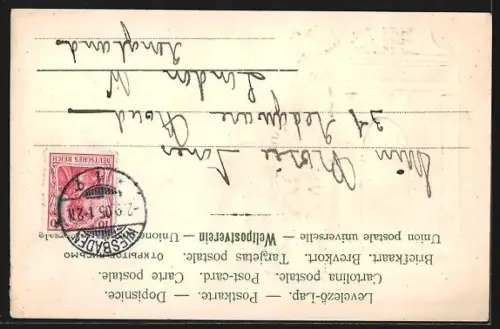 Levelező-Lap. — Postkarte. — Dopisnice.
Cartolina postale. Post-card. Carte postale.
Briefkaart. Brevkort. Tarjetas postale. ОТКРЫТОЕ ПИСЬМО
Union postale universelle — Weltpostverein — Unione postale
DEUTSCHES REICH
10
WIESBADEN
-2.9.05.1-2N
1
Miss Rosie Jones
31 Edgware Road
London W
England